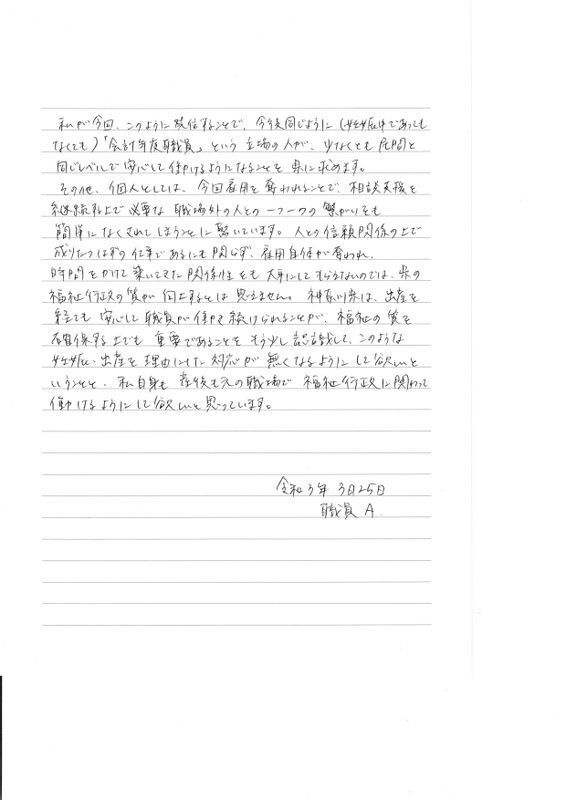 私が今回、このように発信することで、今後同じように(妊娠中であっても
なくても)「会計年度職員」という立場の人が、少なくとも民間と
同じレベルで安心して働けるようになることを県に求めます。
その他、個人としては、今回雇用を奪われることで、相談支援を
継続する上で必要な職場外の人との一つ一つの繋がりをも
簡単になくされてしまうことに驚いています。人との信頼関係の上で
成りたつはずの仕事であるにも関らず、雇用自体が奪われ、
時間をかけて築いてきた関係性をも大事にしてもらえないのでは、県の
福祉行政の質が向上するとは思えません。神奈川県は、出産を
経ても安心して職員が働き続けられることが、福祉の質を
確保する上でも重要であることをもう少し認識して、このような
妊娠、出産を理由にした対応が無くなるようにして欲しいと
いうことと、私自身も産後も元の職場で福祉行政に関わって
働けるようにして欲しいと思っています。
令和3年3月25日
職員A